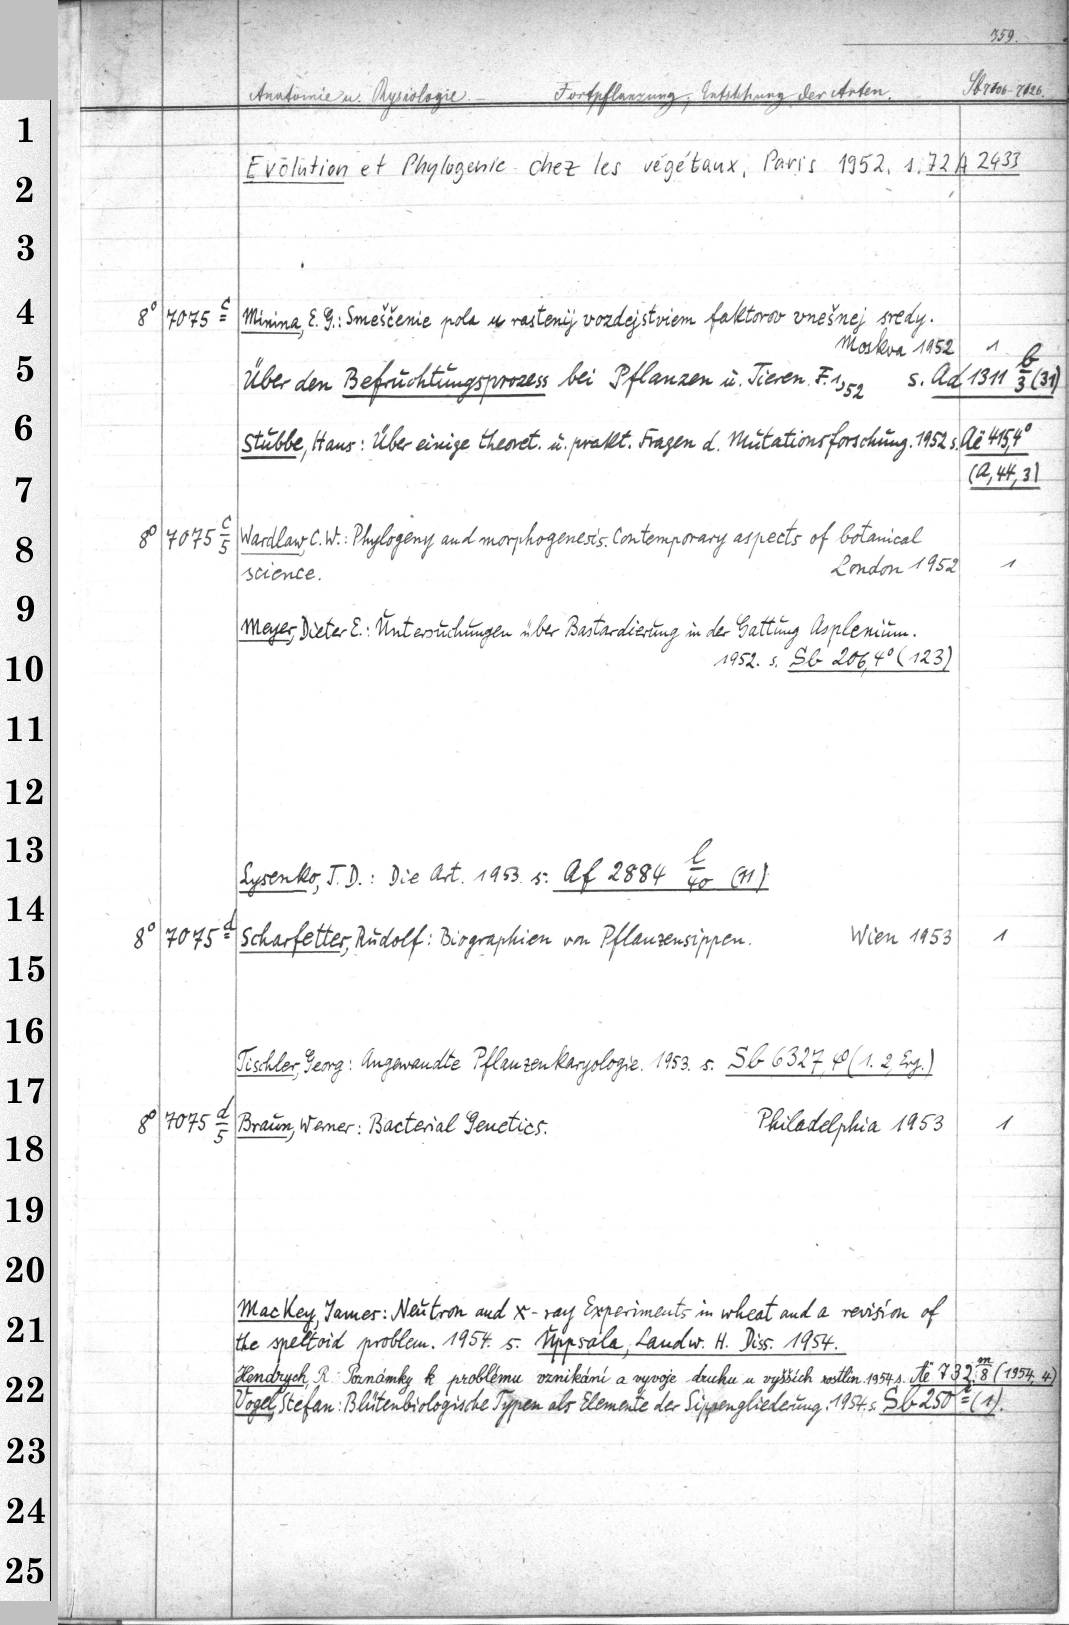 359.
Anatomie u. Physiologie. – Fortpflanzung, Entstehung der Arten. Sb 7106-7126.
1
Evolution et Phylogenie chez les végétaux, Paris 1952. s. 72 A 2433
2
3
4 8° 7075 c Minina, E. G.: Smeščenie pola u rastenij vozdejstviem faktorov vnešnej sredy.
Moskva 1952 1
5 Über den Befruchtungsprozess bei Pflanzen u. Tieren. F. 1, 52 s. Ad 1311 b/3 (31)
6 Stubbe, Hans: Über einige theoret. u. prakt. Fragen d. Mutationsforschung. 1952 s. Aë 415, 4°
7 (A, 44, 3)
8 8° 7075 c/5 Wardlaw, C. W.: Phylogeny and morphogenesis. Contemporary aspects of botanical
science. London 1952 1
9 Meyer, Dieter E.: Untersuchungen über Bastardierung in der Gattung Asplenium.
10 1952. s. Sb 206, 4° (123)
11
12
13
Lysenko, T. D.: Die Art. 1953. s. Af 2884 l/40 (11)
14 8° 7075 d Scharfetter, Rudolf: Biographien von Pflanzensippen. Wien 1953 1
15
16
Tischler, Georg: Angewandte Pflanzenkaryologie. 1953. s. Sb 6327, 4° (1. 2, Erg.)
17
8° 7075 d/5 Braun, Werner: Bacterial Genetics. Philadelphia 1953 1
18
19
20
Mac Key, James: Neutron and x-ray Experiments in wheat and a revision of
21 the speltoid problem. 1954. s. Uppsala, Landw. H. Diss. 1954.
Hendrych, R.: Poznámky k problému vznikání a vyvoje druhu u vyšších rostlin. 1954 s. Aë 732 m/8 (1954, 4)
22 Vogel, Stefan: Blütenbiologische Typen als Elemente der Sippengliederung. 1954. s. Sb 250 (1).
23
24
25